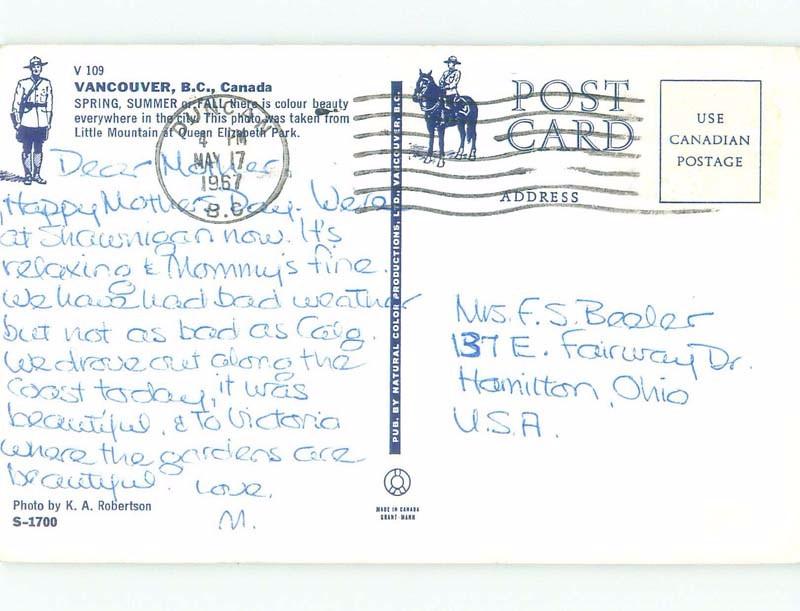 V 109
VANCOUVER, B.C., Canada
SPRING, SUMMER or FALL there is colour beauty
everywhere in the city! This photo was taken from
Little Mountain at Queen Elizabeth Park.
DUNCAN
4 PM
MAY 17
1967
B.C.
Dear Mother,
Happy Mother's Day. We're
at Shawnigan now. It's
relaxing & Mommy's fine.
We have had bad weather
but not as bad as Calg.
We drove out along the
Coast today, it was
beautiful, & to Victoria
where the gardens are
beautiful.
Love,
M.
Photo by K. A. Robertson
S-1700
PUB. BY NATURAL COLOR PRODUCTIONS, LTD., VANCOUVER, B.C.
MADE IN CANADA
GRANT-MANN
POST
CARD
ADDRESS
USE
CANADIAN
POSTAGE
Mrs. F. S. Beeler
137 E. Fairway Dr.
Hamilton, Ohio
U.S.A.